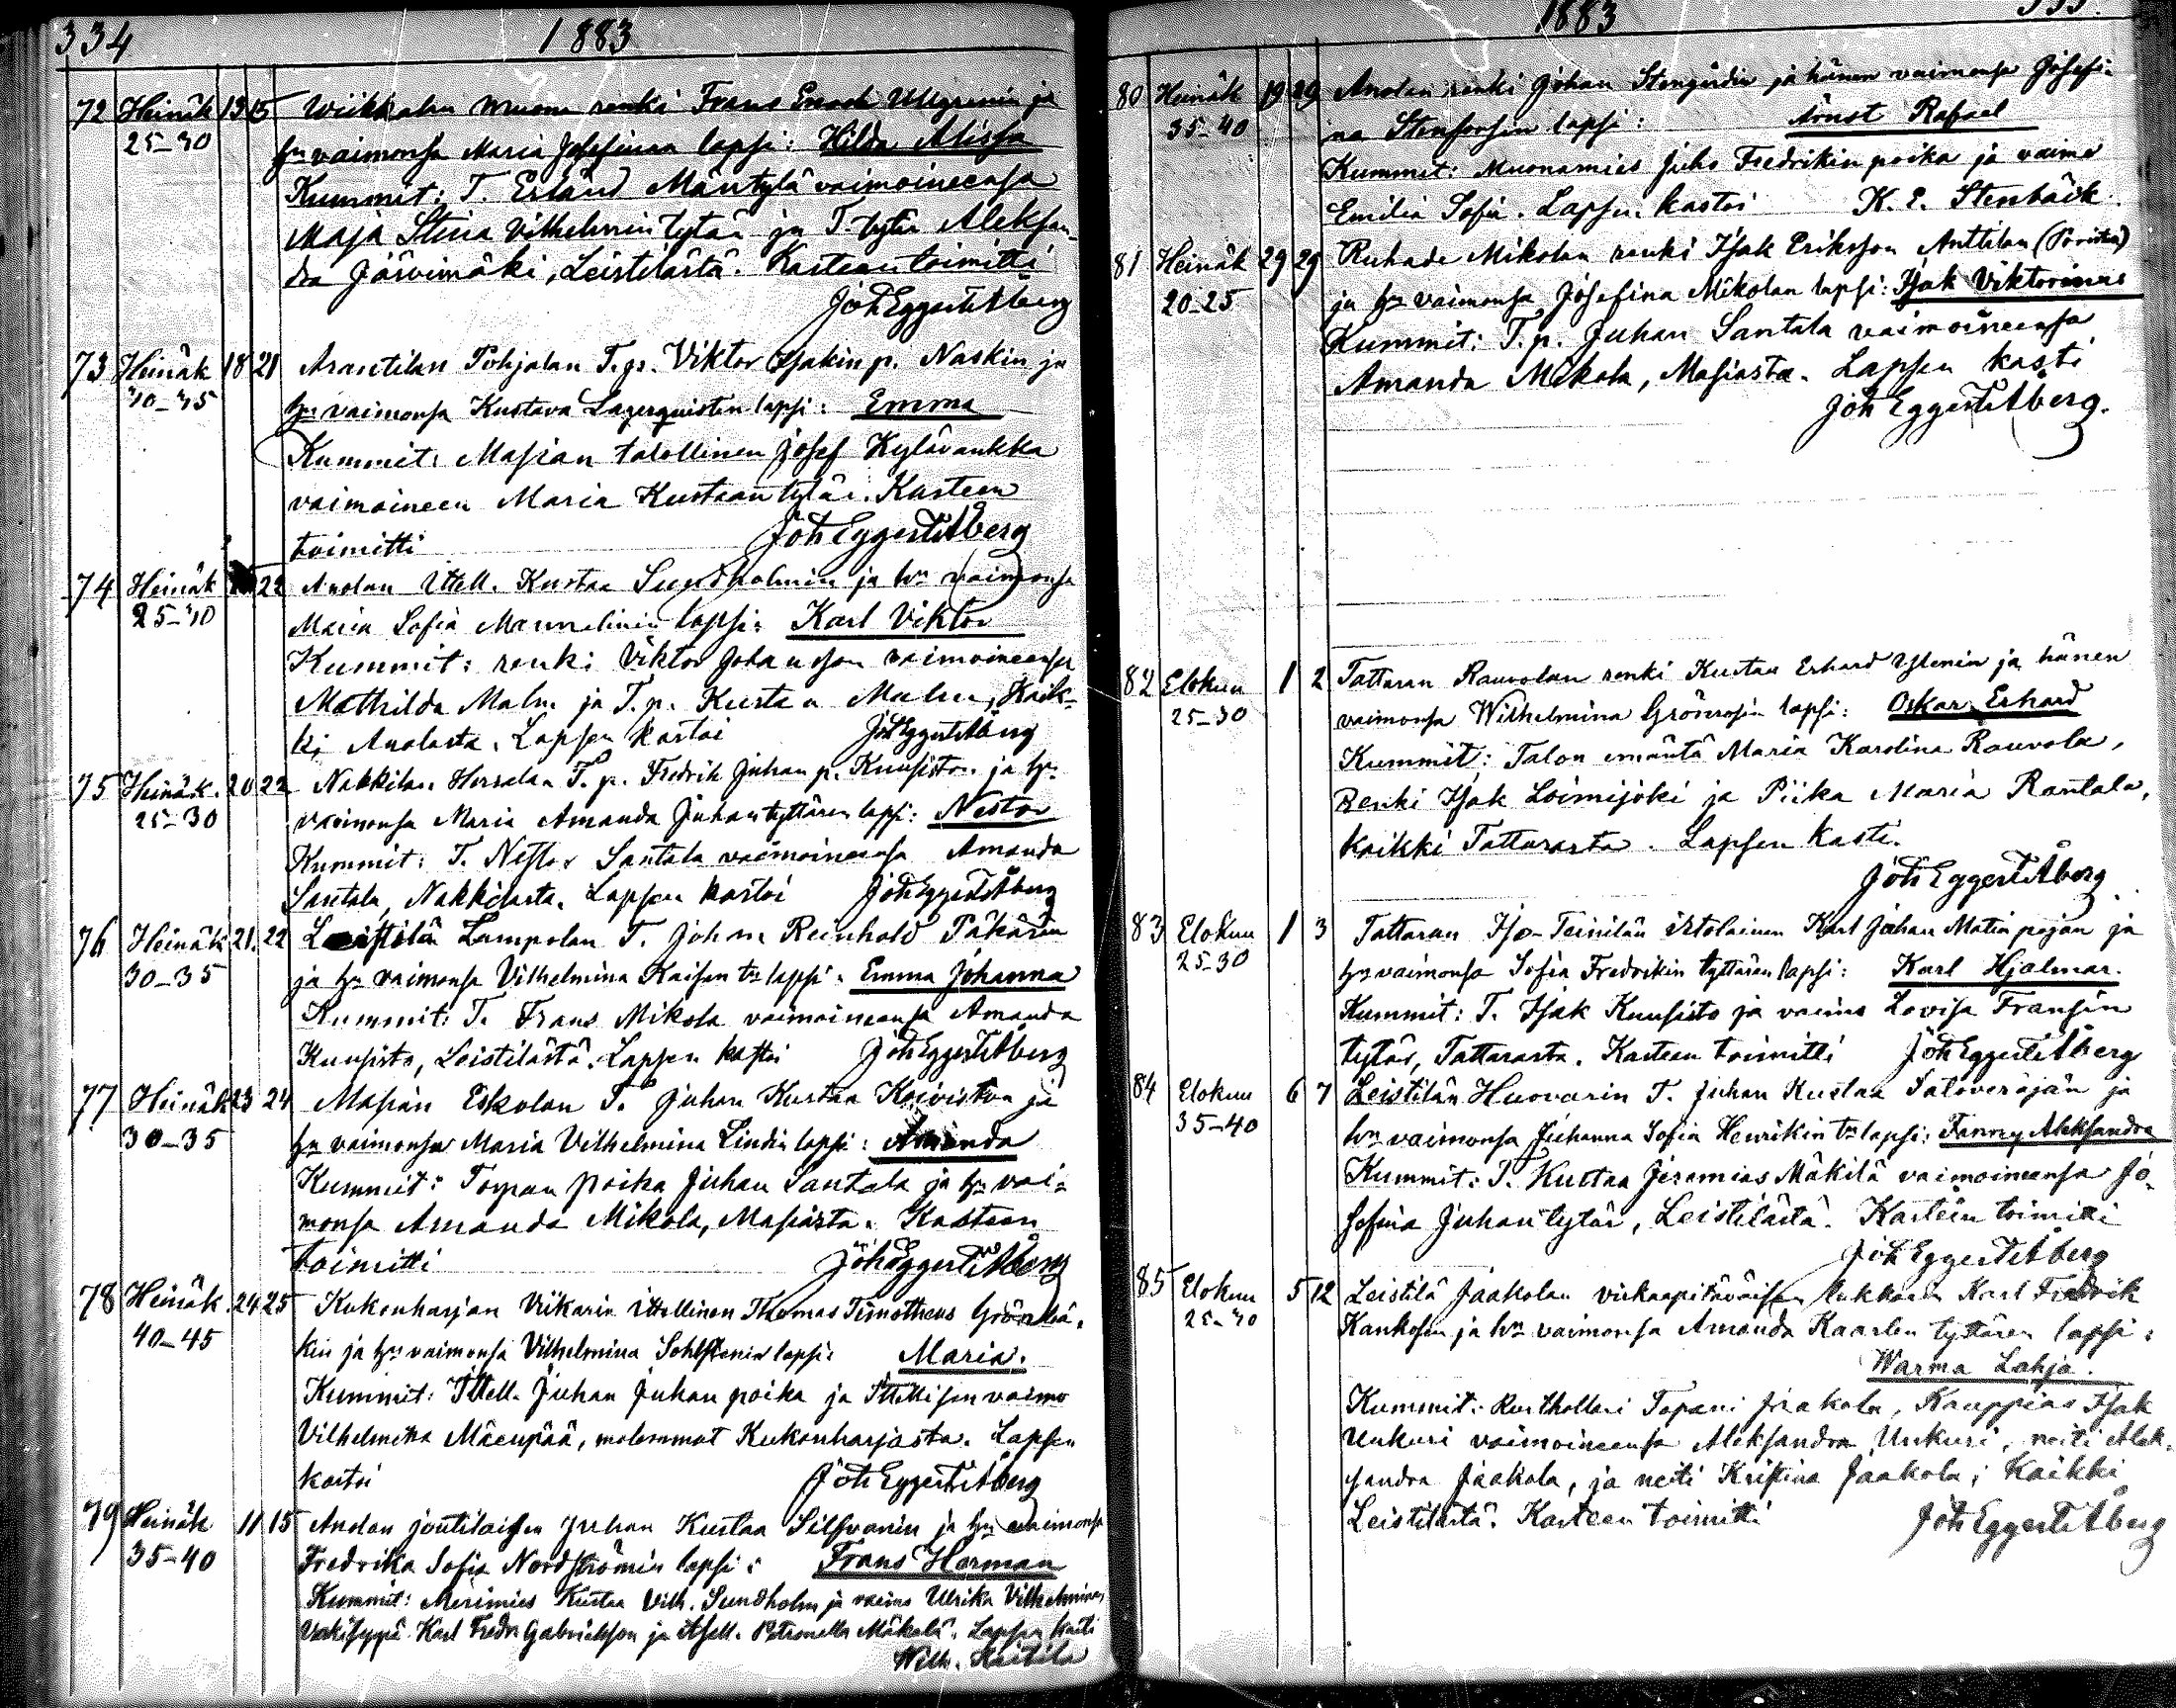 334 1883
72 Heinäk 13 15 Wiikkalan muona renki Frans Enock Ullgrenin ja
25-30 hn vaimonsa Maria Josefiinan lapsi: Hilda Alissa
Kummit: T. Erland Mäntylä vaimoineensa
Maja Stina Vilhelmin tytär ja T. tytär Aleksan-
dra Järvimäki, Leistilästä. Kasteen toimitti
Joh Eggert Åberg
73 Heinäk 18 21 Arantilan Pohjalan T.p. Viktor Isakin p. Naskin ja
40-45 hn vaimonsa Kustava Lagerquistin lapsi: Emma
Kummit: Masian talollinen Josef Kylävankka
vaimoineen Maria Kustaan tytär. Kasteen
toimitti Joh Eggert Åberg
74 Heinäk 22 Anolan Ittell. Kustaa Sundholmin ja hn vaimonsa
25-30 Maria Sofia Mannelinin lapsi: Karl Viktor
Kummit: renki Viktor Johansson vaimoineensa
Mathilda Malm ja T.p. Kustaa Malm, Kaik-
ki Anolasta. Lapsen kastoi Joh Eggert Åberg
75 Heinäk. 20 22 Nakkilan Hersalan T.p. Fredrik Juhan p. Kuusiston ja hn
25-30 vaimonsa Maria Amanda Juhantyttären lapsi: Nestor
Kummit: T. Nestor Santala vaimoineensa Amanda
Santala, Nakkilasta. Lapsen kastoi Joh Eggert Åberg
76 Heinäk 21. 22 Leistilän Lampolan T. Johan Reinhold Päkärin
30-35 ja hn vaimonsa Vilhelmina Kaisan tn lapsi: Emma Johanna
Kummit: T. Frans Mikola vaimoineensa Amanda
Kuusisto, Leistilästä. Lapsen kastoi Joh Eggert Åberg
77 Heinäk 23 24 Masian Eskolan T. Juhan Kustaa Koiviston ja
30-35 hn vaimonsa Maria Vilhelmina Lindin lapsi: Amanda
Kummit: Torpan poika Juhan Santala ja hn vai-
monsa Amanda Mikola, Masiasta. Kasteen
toimitti Joh Eggert Åberg
78 Heinäk. 24 25 Kukonharjan Viikarin ittellinen Thomas Timotheus Grönbä-
40-45 kin ja hn vaimonsa Vilhelmina Sohlstenin lapsi: Maria.
Kummit: Ittell. Juhan Juhan poika ja Ittellisen vaimo
Vilhelmina Mäenpää, molemmat Kukonharjasta. Lapsen
kastoi Joh Eggert Åberg
79 Heinäk 11 15 Anolan joutilaisen Juhan Kustaa Silfvanin ja hn vaimonsa
35-40 Fredrika Sofia Nordströmin lapsi: Frans Herman
Kummit: Merimies Kustaa Vilh. Sundholm ja vaimo Ulrika Vilhelmina,
Karl Fredr. Gabrielsson ja itsell. Petronella Mäkelä. Lapsen kasti
Wilh. Kaitila
1883 335.
80 Heinäk 19 29 Anolan renki Johan Stengårdin ja hänen vaimonsa Josefi-
35-40 na Stenforsin lapsi: Arnst Rafael
Kummit: Muonamies Juho Fredrikin poika ja vaimo
Emilia Sofia. Lapsen kastoi K. E. Stenbäck.
81 Heinäk 29 29 Ruhade Mikolan renki Isak Eriksson Anttilan (Porista)
20-25 ja hn vaimonsa Josefina Mikolan lapsi: Isak Viktorinus
Kummit: T.p. Juhan Santala vaimoineensa
Amanda Mikola, Masiasta. Lapsen kasti
Joh Eggert Åberg.
82 Elokuu 1 2 Tattaran Rauvolan renki Kustaa Erhard Ylenin ja hänen
25-30 vaimonsa Wilhelmina Grönrosin lapsi: Oskar Erhard
Kummit: Talon emäntä Maria Karolina Rauvola,
Renki Isak Loimijoki ja Piika Maria Rantala,
kaikki Tattarasta. Lapsen kasti.
Joh Eggert Åberg
83 Elokuu 1 3 Tattaran Iso-Teinilän Karl Johan Matin pojan ja
25-30 hn vaimonsa Sofia Fredrikin tyttären lapsi: Karl Hjalmar.
Kummit: T. Isak Kuusisto ja vaimo Lovisa Fransin
tytär, Tattarasta. Kasteen toimitti Joh Eggert Åberg
84 Elokuu 6 7 Leistilän Huovarin T. Juhan Kustaa Satoveräjän ja
35-40 hn vaimonsa Juhanna Sofia Henrikin tn lapsi: Fanny Aleksandra
Kummit: T. Kustaa Jeremias Mäkilä vaimoineensa Jo-
sefina Juhan tytär, Leistilästä. Kasteen toimitti
Joh Eggert Åberg
85 Elokuu 5 12 Leistilä Jaakolan virkaapitäväisen lukkarin Karl Fredrik
25-30 Kankosen ja hn vaimonsa Amanda Kaarlen tyttären lapsi:
Warma Lahja.
Kummit: Rusthollari Tapani Jaakola, Kauppias Isak
Unkuri vaimoineensa Aleksandra Unkuri, neiti Alek-
sandra Jaakola, ja neiti Kristina Jaakola; Kaikki
Leistilästä. Kasteen toimitti Joh Eggert Åberg